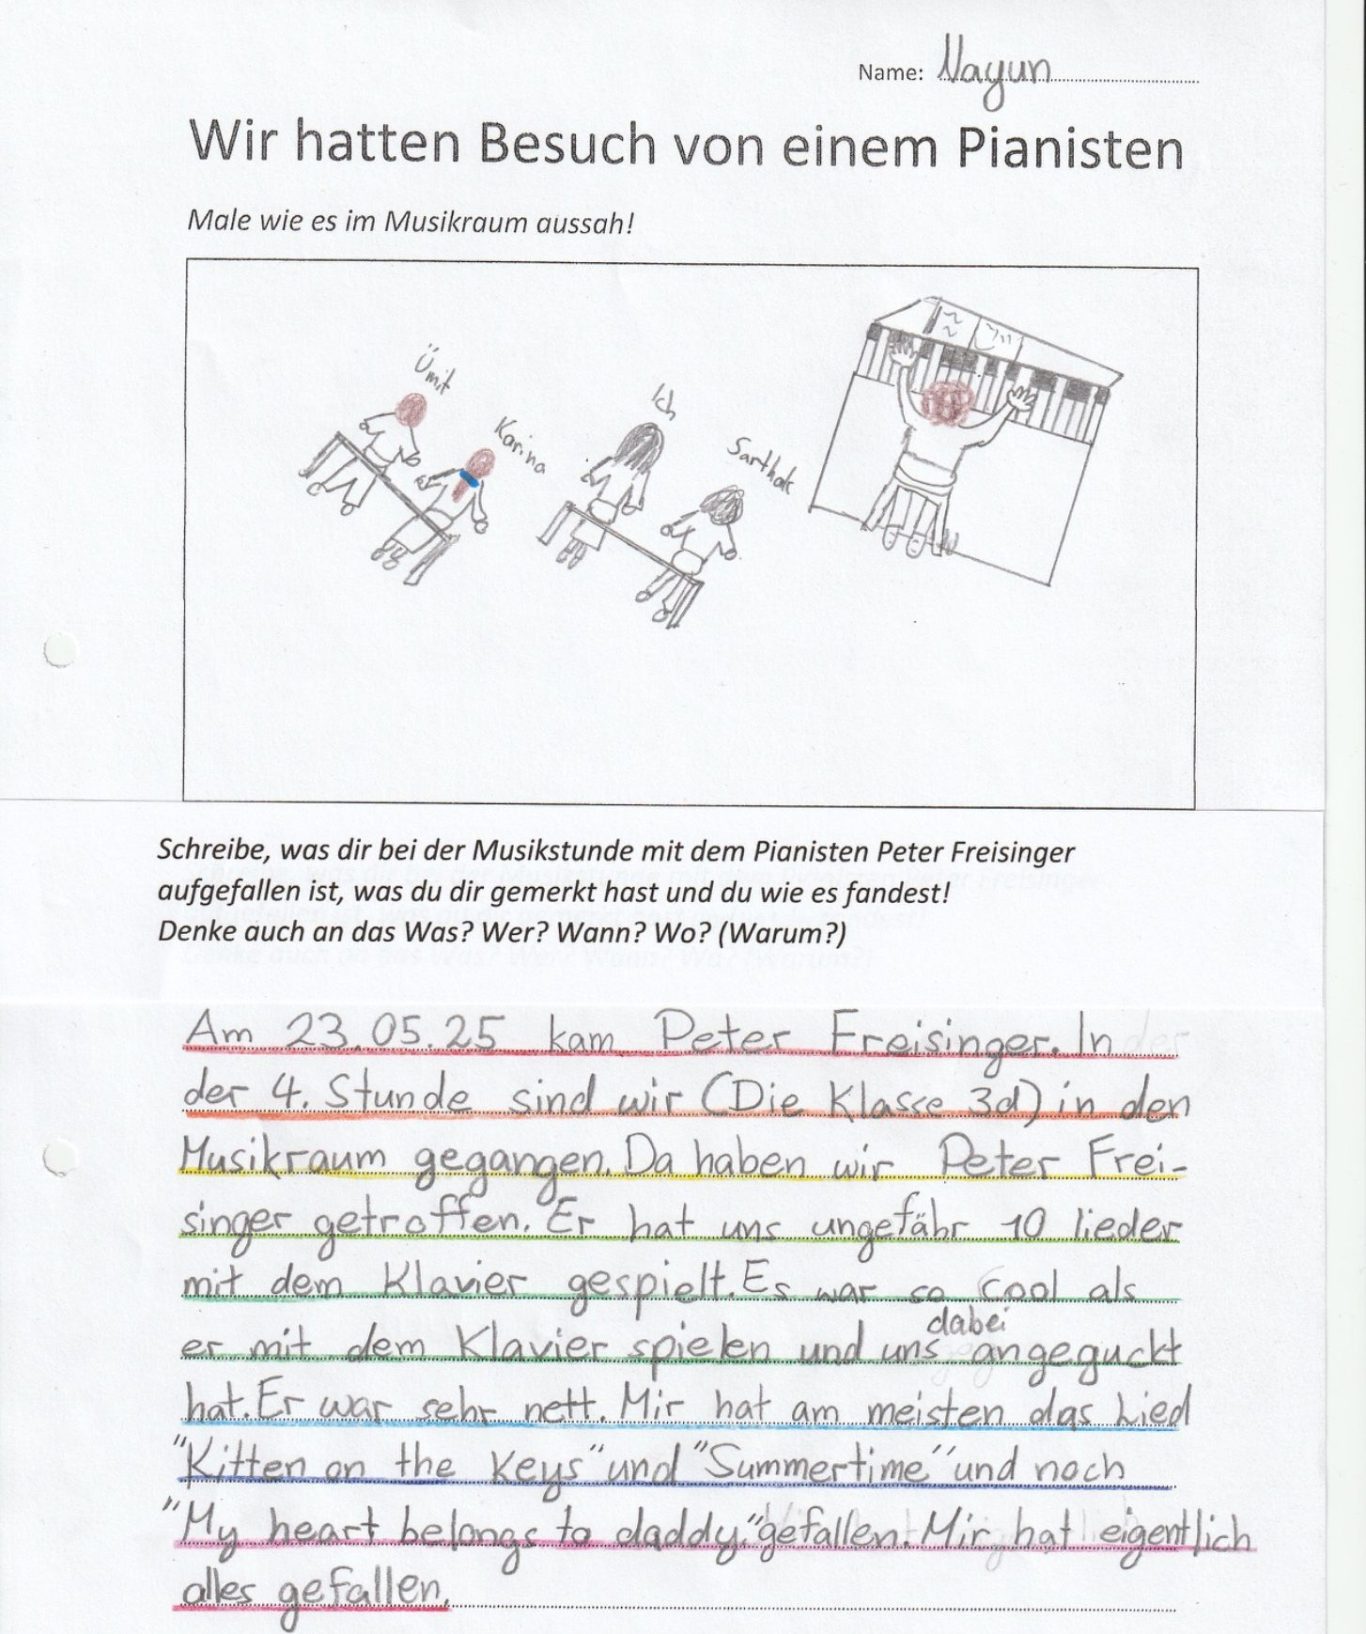 Name: Nayun
Wir hatten Besuch von einem Pianisten
Male wie es im Musikraum aussah!
Ümit
Karina
Ich
Sarthak
Schreibe, was dir bei der Musikstunde mit dem Pianisten Peter Freisinger
aufgefallen ist, was du dir gemerkt hast und du wie es fandest!
Denke auch an das Was? Wer? Wann? Wo? (Warum?)
Am 23.05.25 kam Peter Freisinger. In
der 4. Stunde sind wir (Die Klasse 3d) in den
Musikraum gegangen. Da haben wir Peter Frei-
singer getroffen. Er hat uns ungefähr 10 lieder
mit dem Klavier gespielt. Es war so cool als
dabei
er mit dem Klavier spielen und uns angeguckt
hat. Er war sehr nett. Mir hat am meisten das Lied
"Kitten on the Keys" und "Summertime" und noch
"My heart belongs to daddy." gefallen. Mir hat eigentlich
alles gefallen.